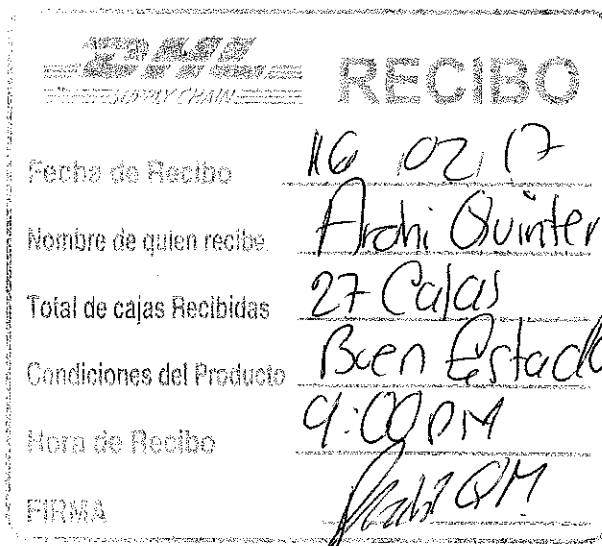 DHL
SUPPLY CHAIN
RECIBO
Fecha de Recibo 16 02 17
Nombre de quien recibe. Archi Quinter
Total de cajas Recibidas 27 Cajas
Condiciones del Producto Buen Estado
Hora de Recibo 9:00 PM
FIRMA